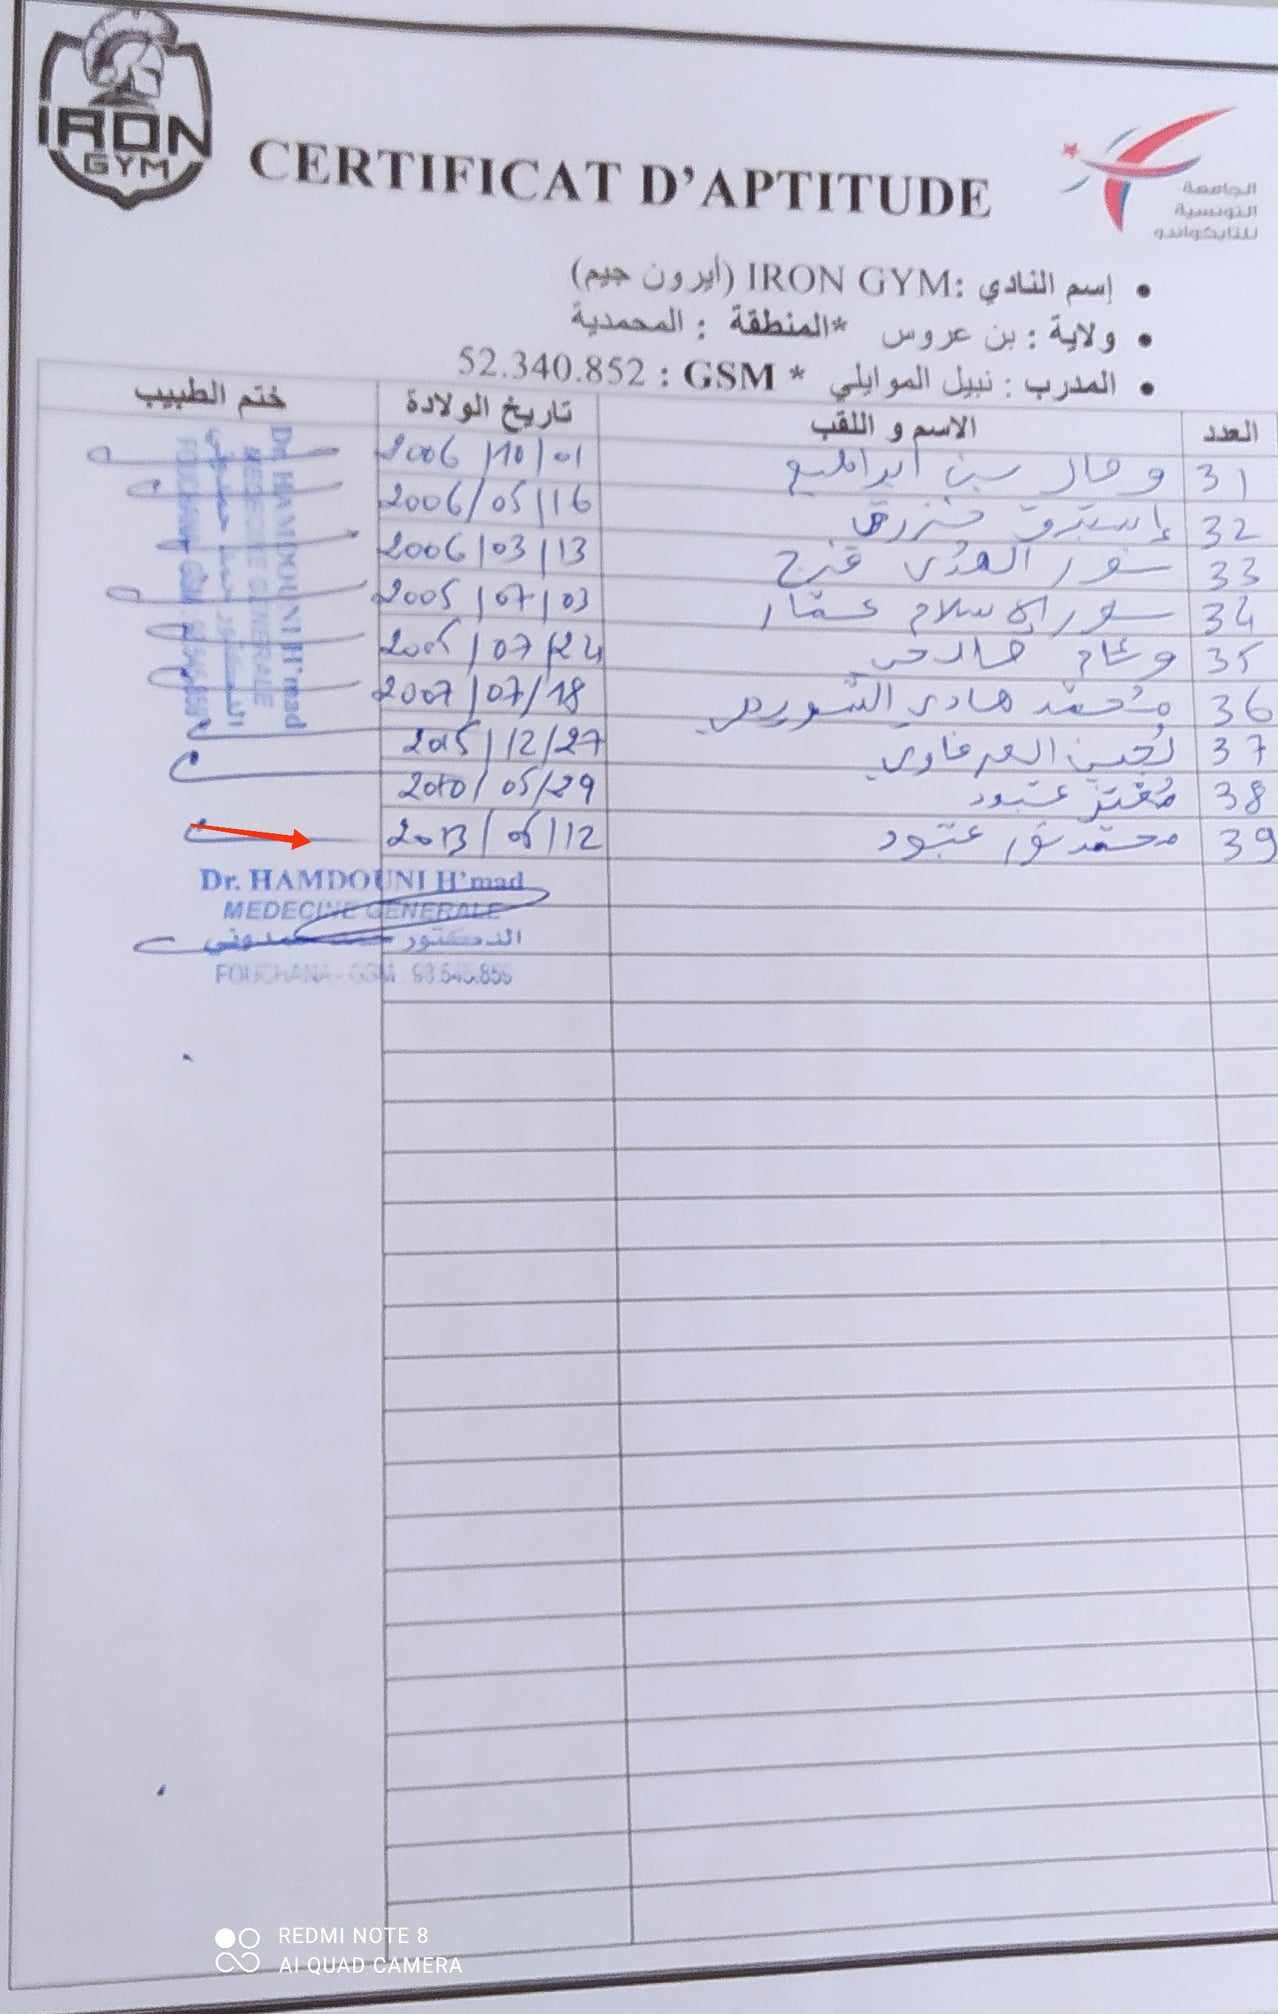 IRON
GYM
CERTIFICAT D'APTITUDE
الجامعة
التونسية
للتايكواندو
• إسم النادي :IRON GYM (أيرون جيم)
• ولاية : بن عروس *المنطقة : المحمدية
• المدرب : نبيل الموايلي * GSM : 52.340.852
العدد الاسم و اللقب تاريخ الولادة ختم الطبيب
31 بن ابراهيم 2006/10/01
32 إستبرق 2006/05/16
33 نور الهدى فرج 2006/03/13
34 نور الإسلام عمّار 2005/07/03
35 وئام صالحي 2005/07/24
36 مُحمّد هادي 2007/07/18
37 لُجين العرفاوي 2015/12/27
38 مُعتز عبّود 2010/05/29
39 محمّد نور عبّود 2013/05/12
Dr. HAMDOUNI H'mad
MEDECINE GENERALE
Dr. HAMDOUNI H'mad
MEDECINE GENERALE
الدكتور حمدوني
FOUCHANA - GSM
REDMI NOTE 8
AI QUAD CAMERA